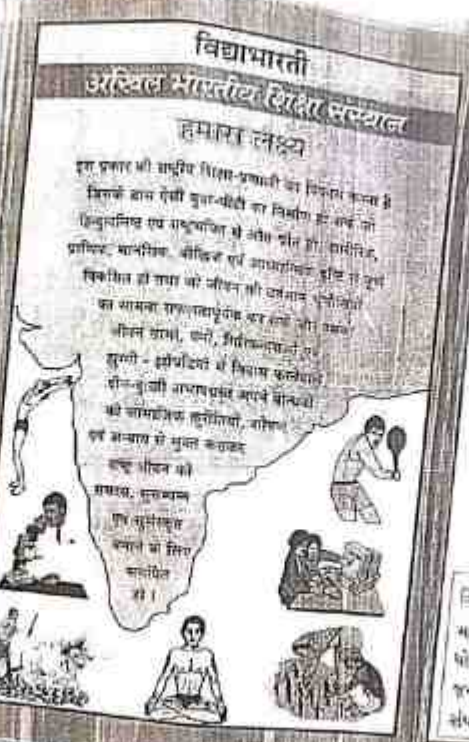 विद्याभारती
अखिल भारतीय शिक्षा संस्थान
हमारा लक्ष्य
इस प्रकार की राष्ट्रीय शिक्षा-प्रणाली का विकास करना है
जिसके द्वारा ऐसी युवा-पीढ़ी का निर्माण हो सके जो
हिन्दुत्वनिष्ठ एवं राष्ट्रभक्ति से ओत प्रोत हो। शारीरिक,
प्राणिक, मानसिक, बौद्धिक एवं आध्यात्मिक दृष्टि से पूर्ण
विकसित हो तथा जो जीवन की वर्तमान चुनौतियों
का सामना सफलतापूर्वक कर सके और उसका
जीवन ग्रामों, वनों, गिरिकन्दराओं एवं
झुग्गी - झोपड़ियों में निवास करनेवाले
दीन-दुःखी अभावग्रस्त अपने बान्धवों
को सामाजिक कुरीतियों, शोषण
एवं अन्याय से मुक्त कराकर
राष्ट्र जीवन को
समरस, सुसम्पन्न
एवं सुसंस्कृत
बनाने के लिए
समर्पित
हो।